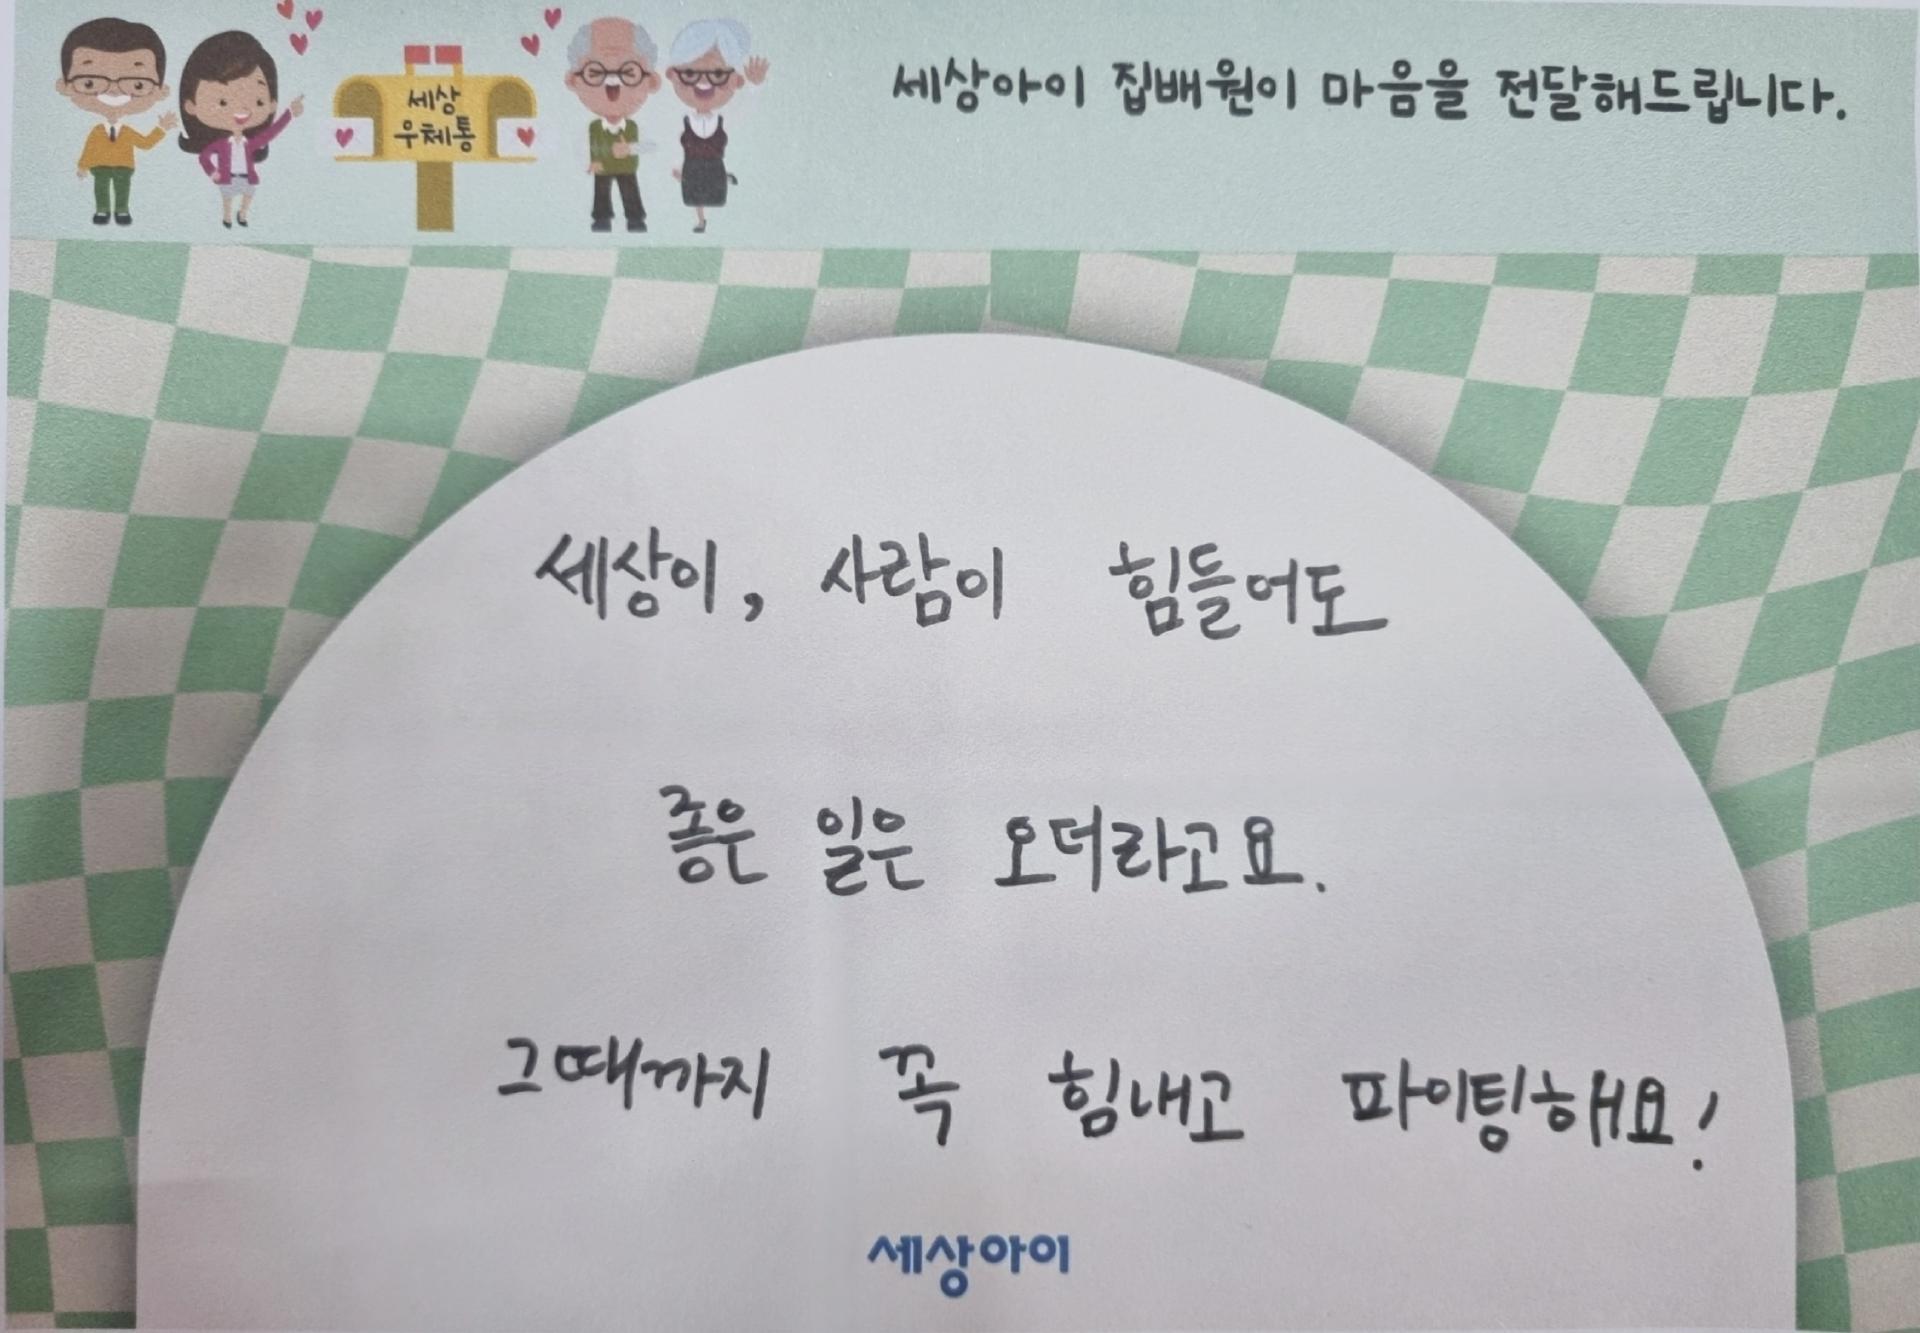 세상아이 집배원이 마음을 전달해드립니다.
세상
우체통
세상이, 사람이 힘들어도
좋은 일은 오더라고요.
그때까지 꼭 힘내고 파이팅해요!
세상아이